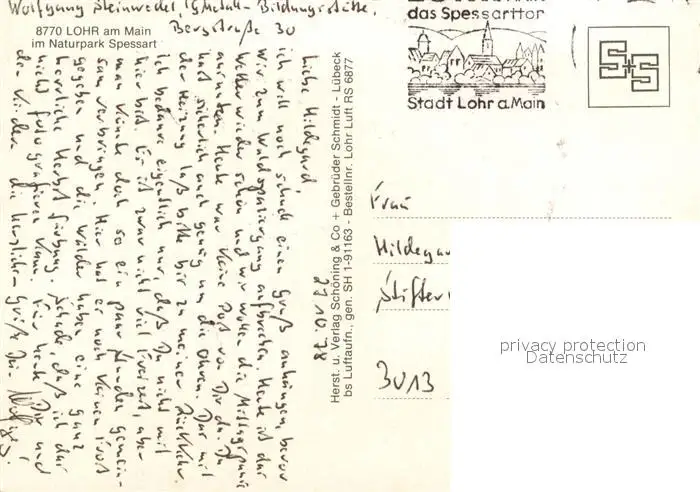 Wolfgang Steinwedel, IG Metall-Bildungsstätte,
Bergstraße 30
8770 LOHR am Main
im Naturpark Spessart
das Spessarttor
Stadt Lohr a.Main
S+S
27.10.78
Liebe Hildegard!
ich will noch schnell einen Gruß anhängen, bevor
wir zum Waldspaziergang aufbrechen. Heute ist das
Wetter wieder schön und wir wollen die Mittagspause
ausnutzen. Heute war keine Post von Dir da. Du
hast sicherlich auch genug um die Ohren. Das mit
der Heizung laß bitte bis zu meiner Rückkehr.
Ich bedaure eigentlich nur, daß Du nicht mit
hier bist. Es ist zwar nicht viel Freizeit, aber
man könnte doch so ein paar Stunden gemein-
sam verbringen. Hier hat es noch keinen Frost
gegeben und die Wälder haben eine ganz
herrliche Herbstfärbung. Schade, daß ich das
nicht fotografieren kann. Für heute Dir und
den Kindern die herzlichsten Grüße Dein
Herst. u. Verlag Schöning & Co + Gebrüder Schmidt - Lübeck
bs Luftaufn., gen. SH 1-91163 - Bestellnr. Lohr Luft RS 6877
Frau
Hildegar
Stifter
3013
privacy protection
Datenschutz